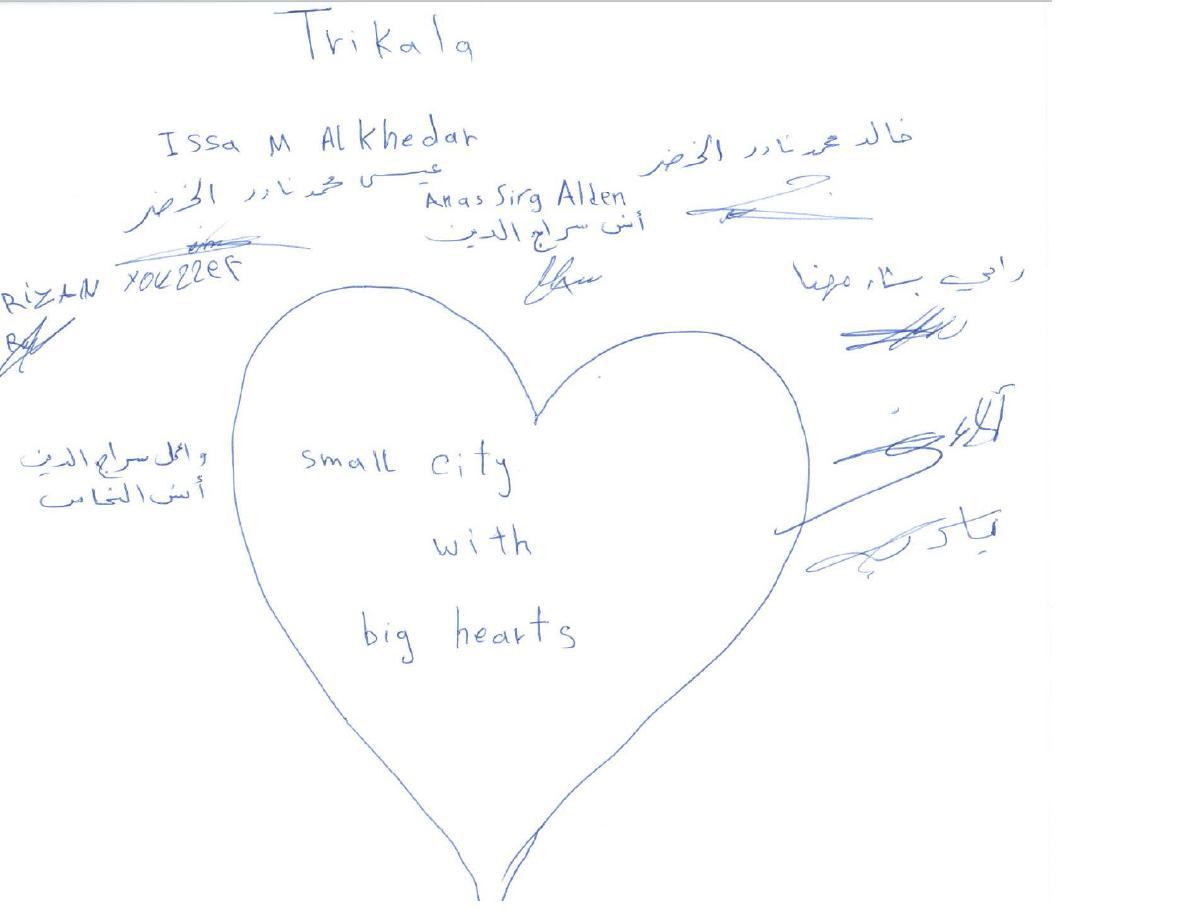 Trikala
Issa M Alkhedar
خالد محمد نادر الخضر
عيسى محمد نادر الخضر
Anas Sirg Alden
أنس سراج الدين
RiZAN
رامي بشار مهنا
وائل سراج الدين
أنس النحاس
small city
with
big hearts